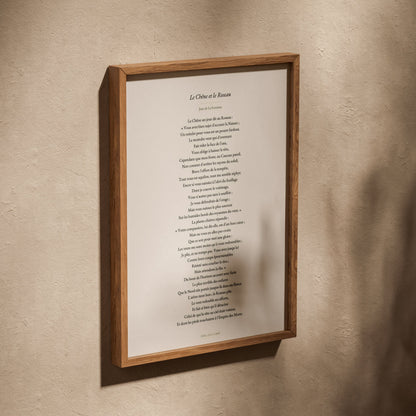 Le Chêne et le Roseau
Jean de La Fontaine
Le Chêne un jour dit au Roseau :
« Vous avez bien sujet d'accuser la Nature ;
Un roitelet pour vous est un pesant fardeau.
Le moindre vent qui d'aventure
Fait rider la face de l'eau,
Vous oblige à baisser la tête,
Cependant que mon front, au Caucase pareil,
Non content d'arrêter les rayons du soleil,
Brave l'effort de la tempête.
Tout vous est aquilon, tout me semble zéphyr.
Encor si vous naissiez à l'abri du feuillage
Dont je couvre le voisinage,
Vous n'auriez pas tant à souffrir :
Je vous défendrais de l'orage ;
Mais vous naissez le plus souvent
Sur les humides bords des royaumes du vent.
La nature
« Votre compassion, lui répondit
Mais
Que
Les vents me sont moins qu'à vous redoutables ;
Je plie, et ne romps pas. Vous avez jusqu'ici
Contre leurs coups épouvantables
Résisté sans courber le dos ;
Mais attendons la fin. »
Du bout de l'horizon accourt avec furie
Le plus terrible des enfants
Que le Nord eût portés jusque-là dans ses flancs.
L'arbre tient bon ; le Roseau plie.
Le vent redouble ses efforts,
Et fait si bien qu'il déracine
Celui de qui la tête au ciel était voisine
Et dont les pieds touchaient à l'Empire des Morts.